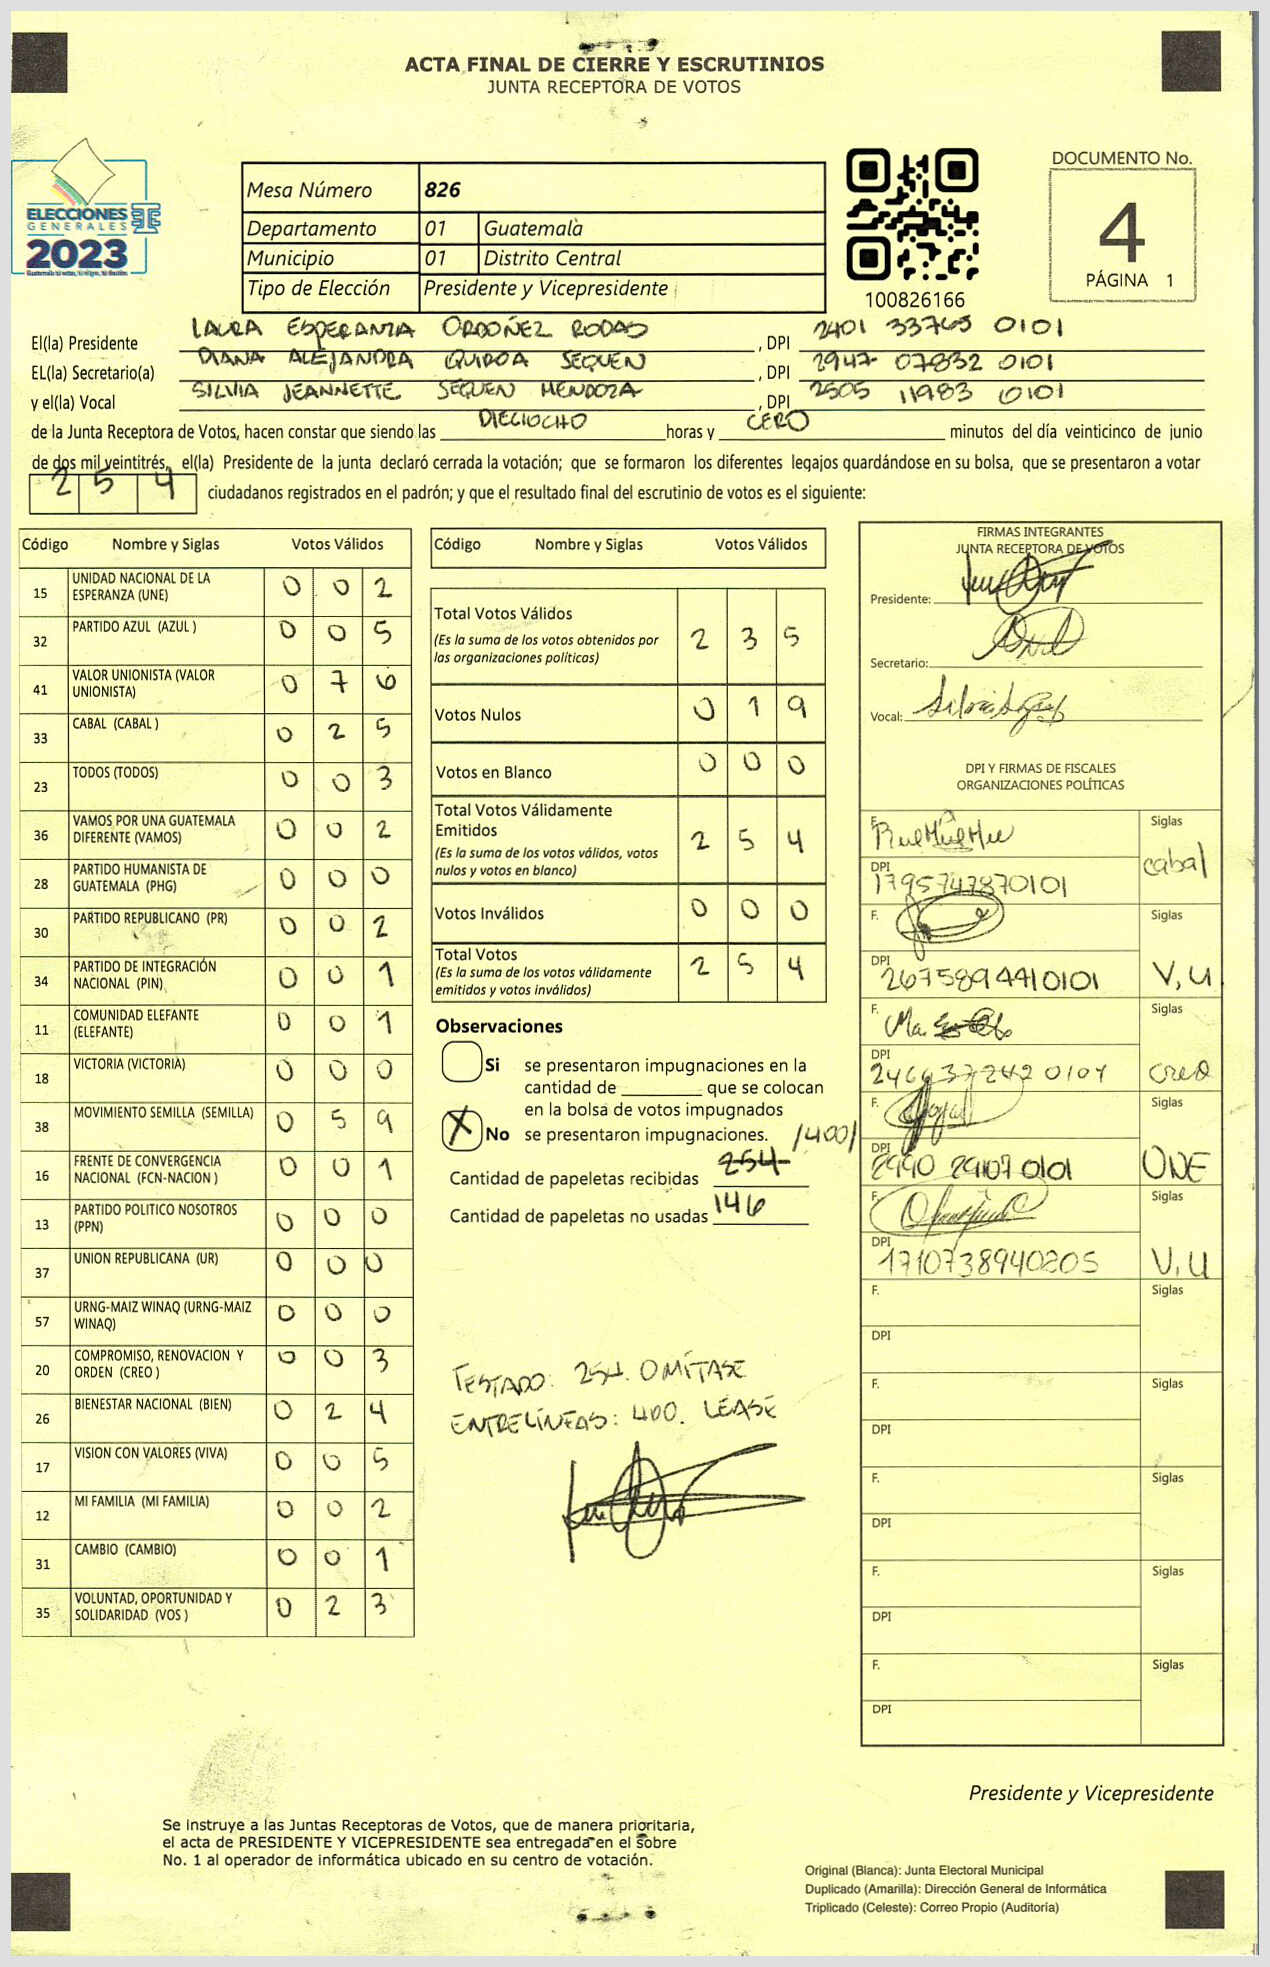 ACTA FINAL DE CIERRE Y ESCRUTINIOS
JUNTA RECEPTORA DE VOTOS
ELECCIONES
GENERALES
2023
Mesa Número 826
Departamento 01 Guatemala
Municipio 01 Distrito Central
Tipo de Elección Presidente y Vicepresidente
100826166
DOCUMENTO No.
4
PÁGINA 1
El(la) Presidente LAURA ESPERANZA ORDOÑEZ RODAS , DPI 2401 33765 0101
EL(la) Secretario(a) DIANA ALEJANDRA QUIROA SEQUEN , DPI 2947 07832 0101
y el(la) Vocal SILVIA JEANNETTE SEQUEN MENDOZA , DPI 2505 11983 0101
de la Junta Receptora de Votos, hacen constar que siendo las DIECIOCHO horas y CERO minutos del día veinticinco de junio
de dos mil veintitrés, el(la) Presidente de la junta declaró cerrada la votación; que se formaron los diferentes legajos guardándose en su bolsa, que se presentaron a votar
254 ciudadanos registrados en el padrón; y que el resultado final del escrutinio de votos es el siguiente:
Código Nombre y Siglas Votos Válidos
15 UNIDAD NACIONAL DE LA ESPERANZA (UNE) 0 0 2
32 PARTIDO AZUL (AZUL ) 0 0 5
41 VALOR UNIONISTA (VALOR UNIONISTA) 0 7 6
33 CABAL (CABAL ) 0 2 5
23 TODOS (TODOS) 0 0 3
36 VAMOS POR UNA GUATEMALA DIFERENTE (VAMOS) 0 0 2
28 PARTIDO HUMANISTA DE GUATEMALA (PHG) 0 0 0
30 PARTIDO REPUBLICANO (PR) 0 0 2
34 PARTIDO DE INTEGRACIÓN NACIONAL (PIN) 0 0 1
11 COMUNIDAD ELEFANTE (ELEFANTE) 0 0 1
18 VICTORIA (VICTORIA) 0 0 0
38 MOVIMIENTO SEMILLA (SEMILLA) 0 5 9
16 FRENTE DE CONVERGENCIA NACIONAL (FCN-NACION ) 0 0 1
13 PARTIDO POLITICO NOSOTROS (PPN) 0 0 0
37 UNION REPUBLICANA (UR) 0 0 0
57 URNG-MAIZ WINAQ (URNG-MAIZ WINAQ) 0 0 0
20 COMPROMISO, RENOVACION Y ORDEN (CREO ) 0 0 3
26 BIENESTAR NACIONAL (BIEN) 0 2 4
17 VISION CON VALORES (VIVA) 0 0 5
12 MI FAMILIA (MI FAMILIA) 0 0 2
31 CAMBIO (CAMBIO) 0 0 1
35 VOLUNTAD, OPORTUNIDAD Y SOLIDARIDAD (VOS ) 0 2 3
Código Nombre y Siglas Votos Válidos
Total Votos Válidos 2 3 5
(Es la suma de los votos obtenidos por
las organizaciones políticas)
Votos Nulos 0 1 9
Votos en Blanco 0 0 0
Total Votos Válidamente
Emitidos 2 5 4
(Es la suma de los votos válidos, votos
nulos y votos en blanco)
Votos Inválidos 0 0 0
Total Votos 2 5 4
(Es la suma de los votos válidamente
emitidos y votos inválidos)
Observaciones
Si se presentaron impugnaciones en la
cantidad de ________ que se colocan
en la bolsa de votos impugnados
X No se presentaron impugnaciones.
/400/
Cantidad de papeletas recibidas 254
Cantidad de papeletas no usadas 146
TESTADO: 254. OMÍTASE
ENTRELÍNEAS: 400. LEASE
FIRMAS INTEGRANTES
JUNTA RECEPTORA DE VOTOS
Presidente:
Secretario:
Vocal:
DPI Y FIRMAS DE FISCALES
ORGANIZACIONES POLÍTICAS
F. Siglas
DPI 1795747870101 cabal
F. Siglas
DPI 2675894410101 V,U
F. Siglas
DPI 2466 37242 0101 creo
F. Siglas
DPI 2990 29107 0101 UNE
F. Siglas
DPI 1710738940205 V,U
F. Siglas
DPI
F. Siglas
DPI
F. Siglas
DPI
F. Siglas
DPI
F. Siglas
DPI
Presidente y Vicepresidente
Se instruye a las Juntas Receptoras de Votos, que de manera prioritaria,
el acta de PRESIDENTE Y VICEPRESIDENTE sea entregada en el sobre
No. 1 al operador de informática ubicado en su centro de votación.
Original (Blanca): Junta Electoral Municipal
Duplicado (Amarilla): Dirección General de Informática
Triplicado (Celeste): Correo Propio (Auditoría)